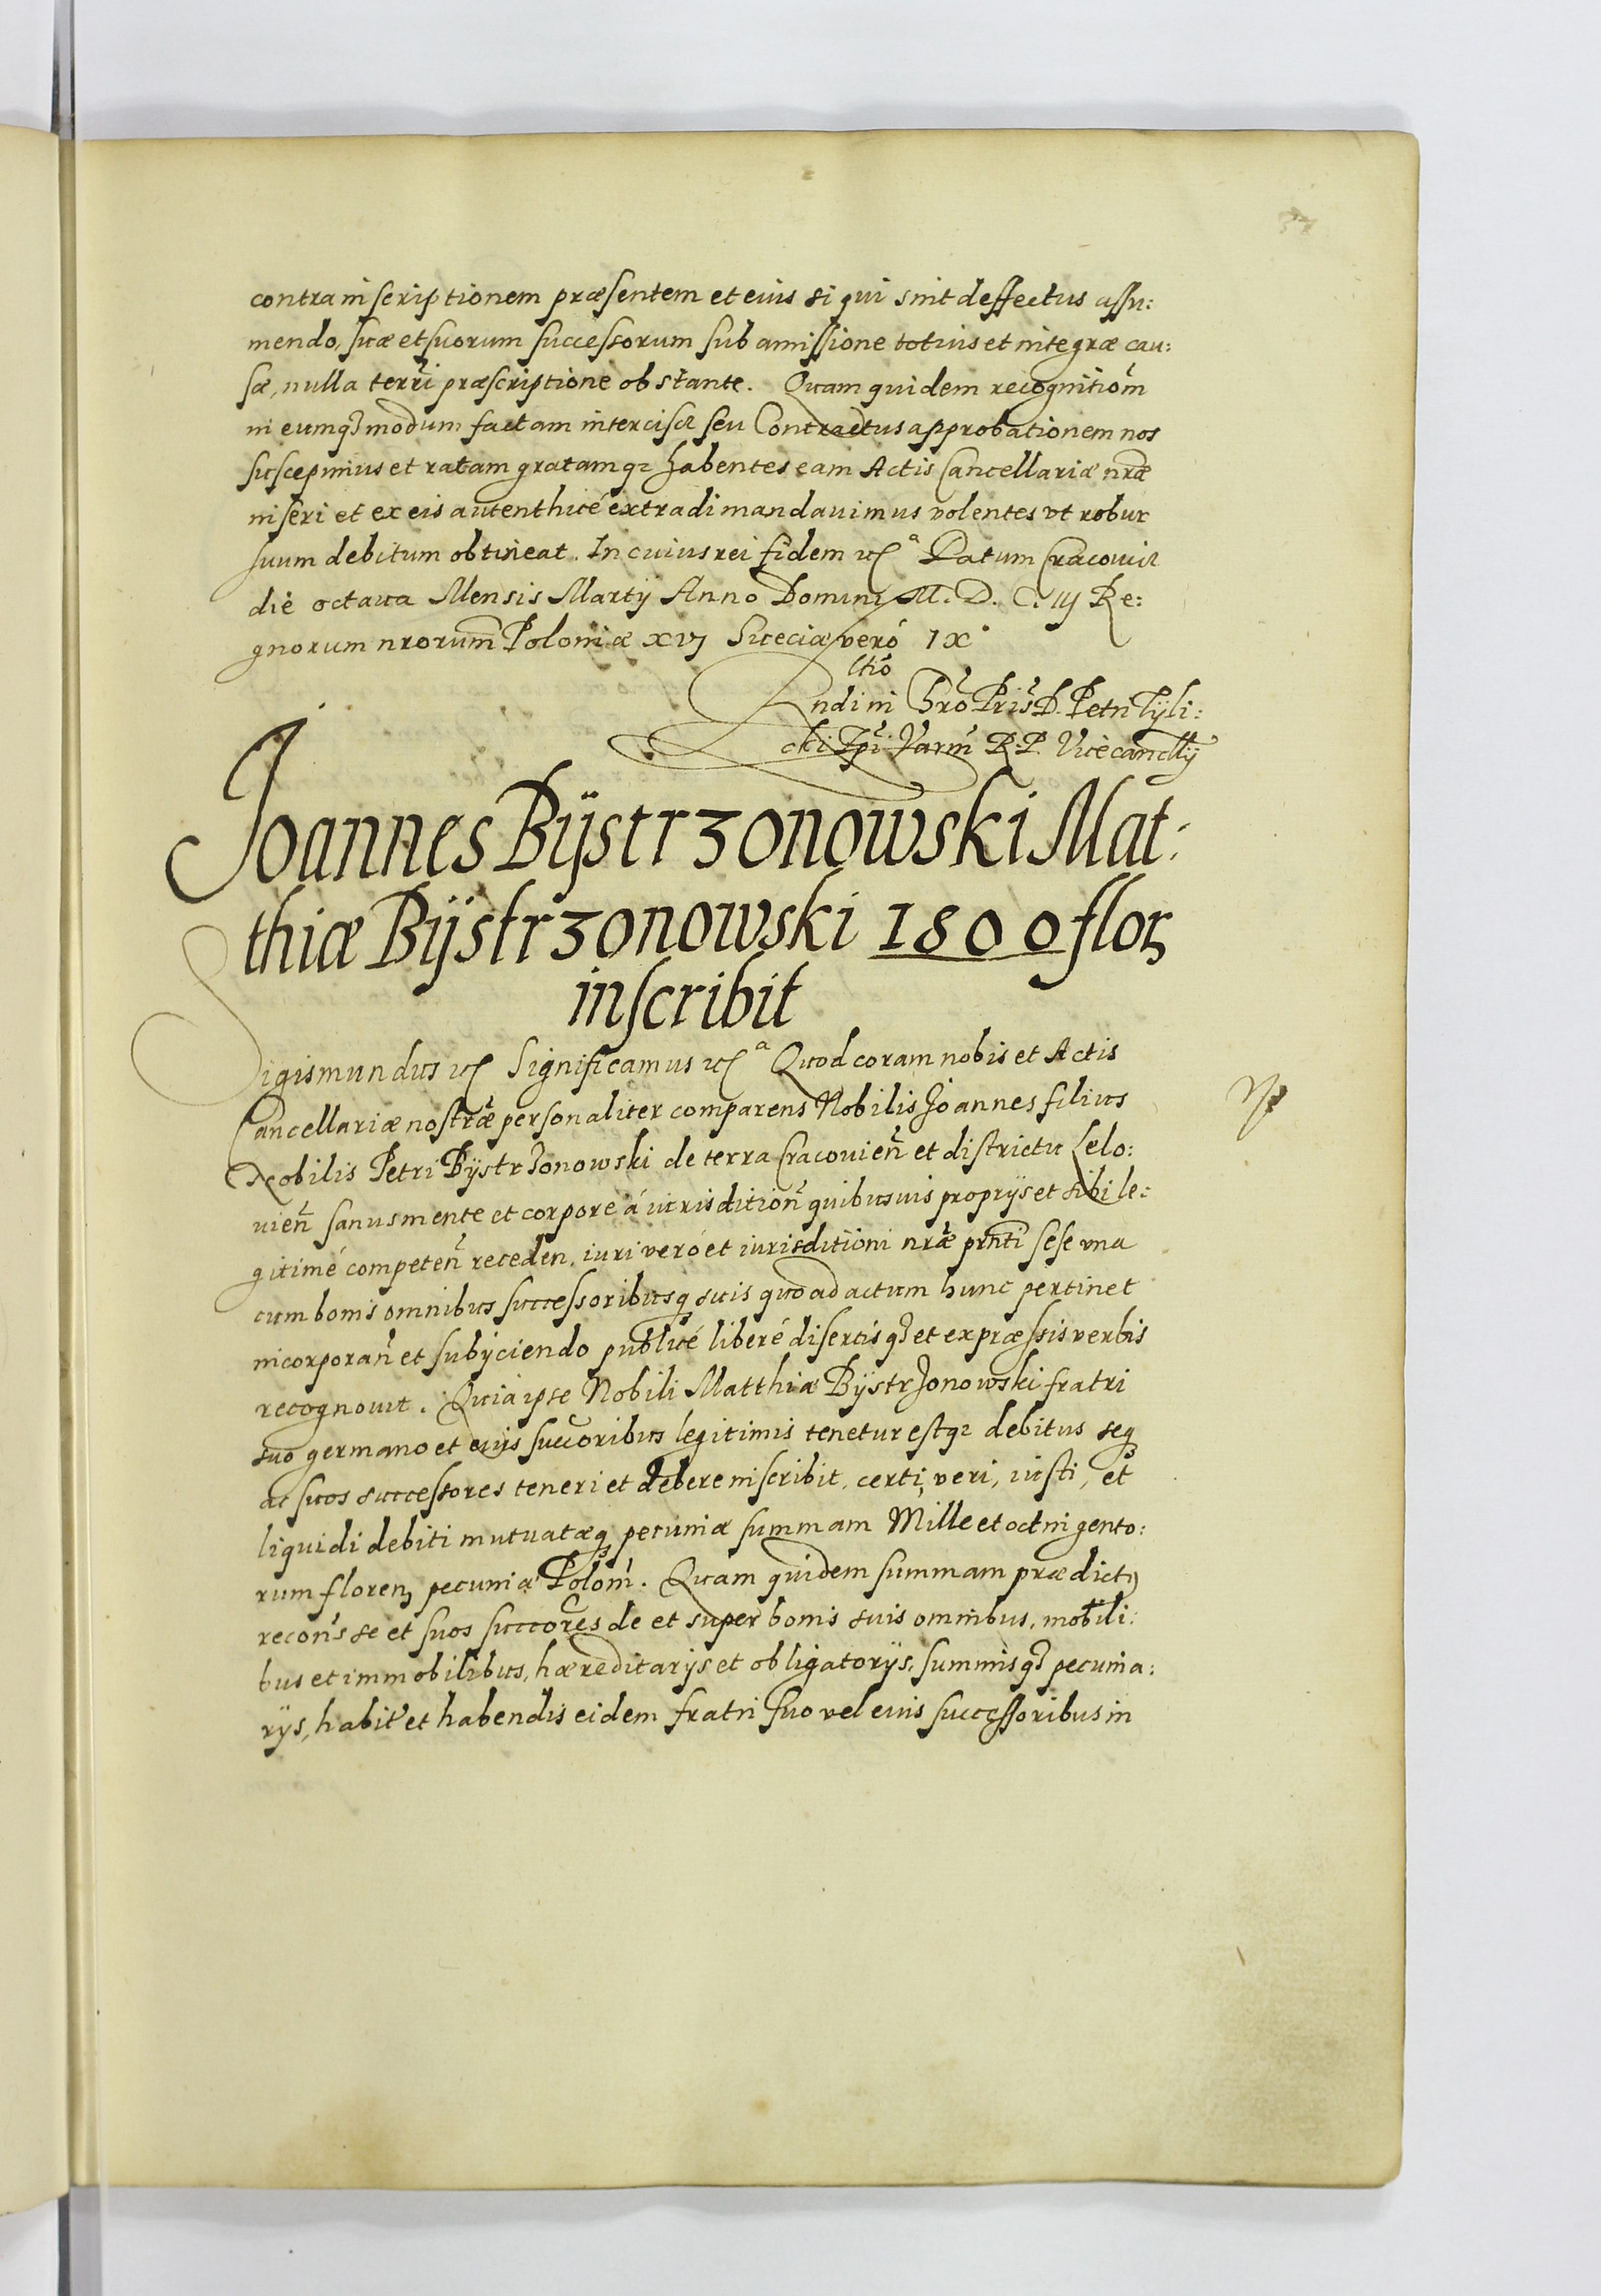 37
contra inscriptionem præsentem et eius si qui sint deffectus assu:
mendo, suæ et suorum successorum sub amissione totius et integræ cau:
sæ, nulla terri præscriptione obstante. Quam quidem recognitiom
in eumq3 modum factam intercisæ seu Contractus approbationem nos
suscepimus et ratam gratamq3 habentes eam Actis Cancellariæ nræ
inseri et ex eis autenthicé extradi mandauimus volentes vt robur
suum debitum obtineat. In cuius rei fidem etc a Datum Cracouiæ
die octaua Mensis Martij Anno Domini M. D. C. iij Re:
gnorum nrorum Poloniæ xvj Sueciæ veró ix
ltió
ndi in Chro Pris D. Petri Tÿli:
cki Epi Varm R. P. Vicecancllÿ
Joannes Bÿstrzonowski Mat:
thiæ Bÿstrzonowski 1800 flor
inscribit
Sigismundus etc Significamus etc a Quod coram nobis et Actis
Cancellariæ nostræ personaliter comparens Nobilis Joannes filius
Nobilis Petri Bÿstrzonowski de terra Cracouien et districtu Lelo:
uien sanus mente et corpore á iurisdition quibusuis proprijs et sibi le:
gitimé competen receden, iuri veró et iurisditioni nræ prnti sese vna
cum bonis omnibus successoribusq suis quo ad actum hunc pertinet
incorporan et subijciendo publicé liberé disertisq3 et expræssis verbis
recognouit. Quia ipse Nobili Matthiæ Bÿstrzonowski fratri
suo germano et eius succoribus legitimis tenetur estq3 debitus seq
ac suos successores teneri et debere inscribit, certi, veri, iusti, et
liquidi debiti mutuatæq pecuniæ summam Mille et octingento:
rum floren pecuniæ Polom. Quam quidem summam prædict9
recons se et suos succores de et super bonis suis omnibus, mobili:
bus et immobilibus, hæreditarijs et obligatorijs, summisq3 pecunia:
rijs, habit et habendis eidem fratri suo vel eius successoribus in